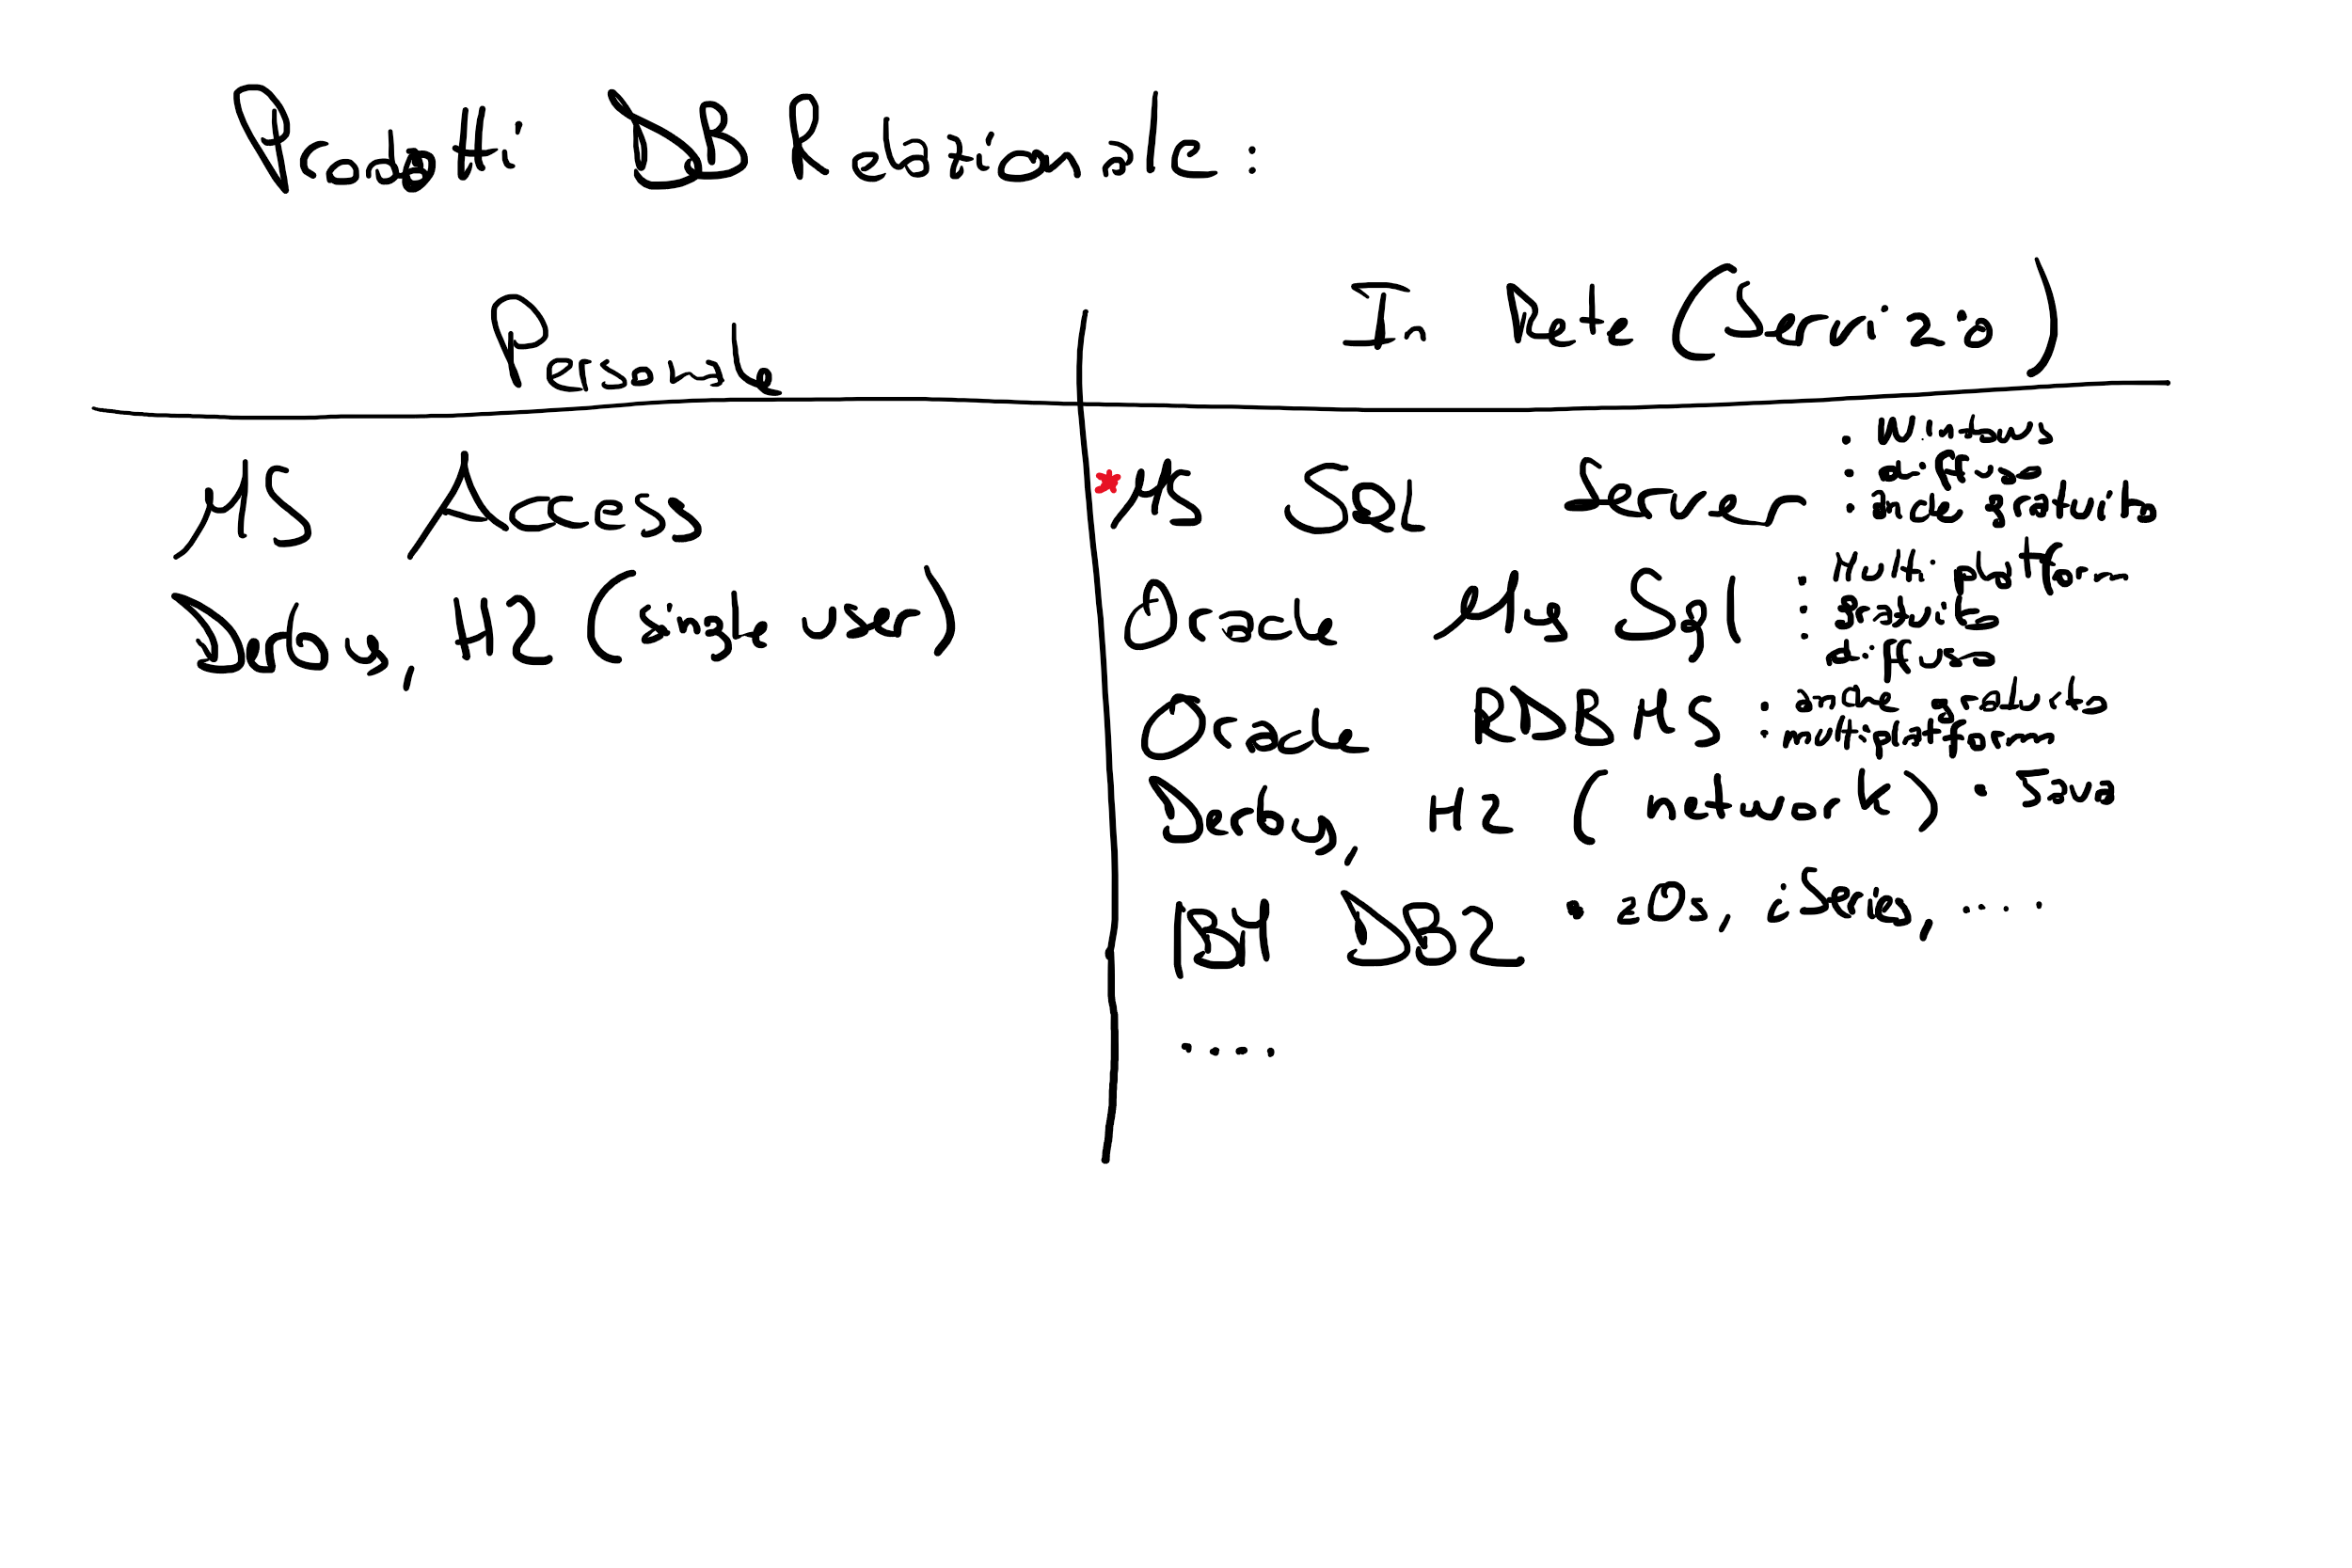 Prodotti DB Relazionale :
Personale
In Rete (Servizio)
MS Access
Derby, H2 (single user)
* MS SQL Server
. Windows
. diffuso
. anche gratuito
Oracle My Sql
. Multi platform
. gratuito
. diffuso
Oracle RDBMS
. anche gratuito
. multiplatform
Derby, H2 (network) . Java
IBM DB2 . zOs, iSerie, ....
....